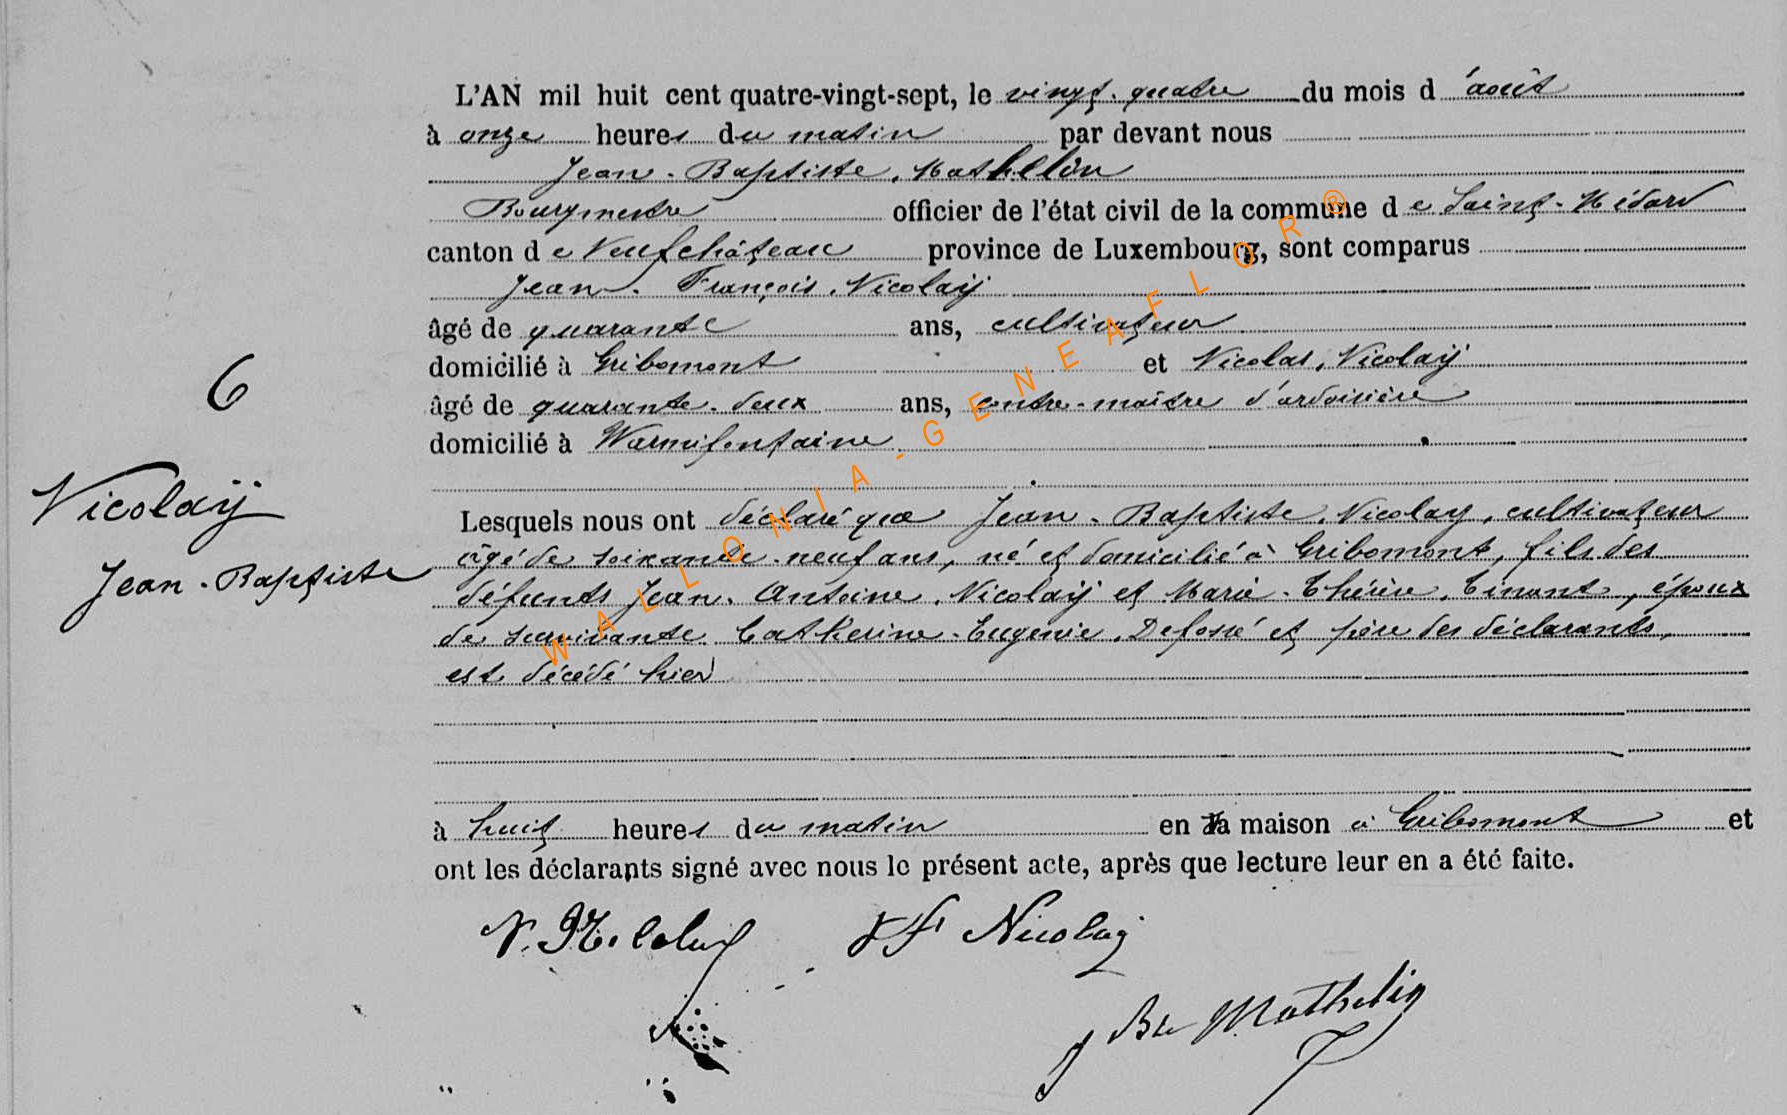 L'AN mil huit cent quatre-vingt-sept, le vingt-quatre du mois d'août
à onze heures du matin par devant nous
Jean-Baptiste Mathelin
Bourgmestre officier de l'état civil de la commune de Saint-Médard
canton de Neufchâteau province de Luxembourg, sont comparus
Jean-François Nicolaÿ
âgé de quarante ans, cultivateur
domicilié à Gribomont et Nicolas Nicolaÿ
âgé de quarante-deux ans, contre-maître d'ardoisière
domicilié à Warmifontaine
6
Nicolaÿ
Jean-Baptiste
Lesquels nous ont déclaré que Jean-Baptiste Nicolay, cultivateur
âgé de soixante-neuf ans, né et domicilié à Gribomont, fils des
défunts Jean-Antoine Nicolaÿ et Marie-Thérèse Tinant, époux
de survivante Catherine-Eugenie Defossé et père des déclarants,
est décédé hier
à huit heures du matin en sa maison à Gribomont et
ont les déclarants signé avec nous le présent acte, après que lecture leur en a été faite.
N. JF Nicolaÿ
JBte Mathelin
WALLONIA-GENEAFLOR®